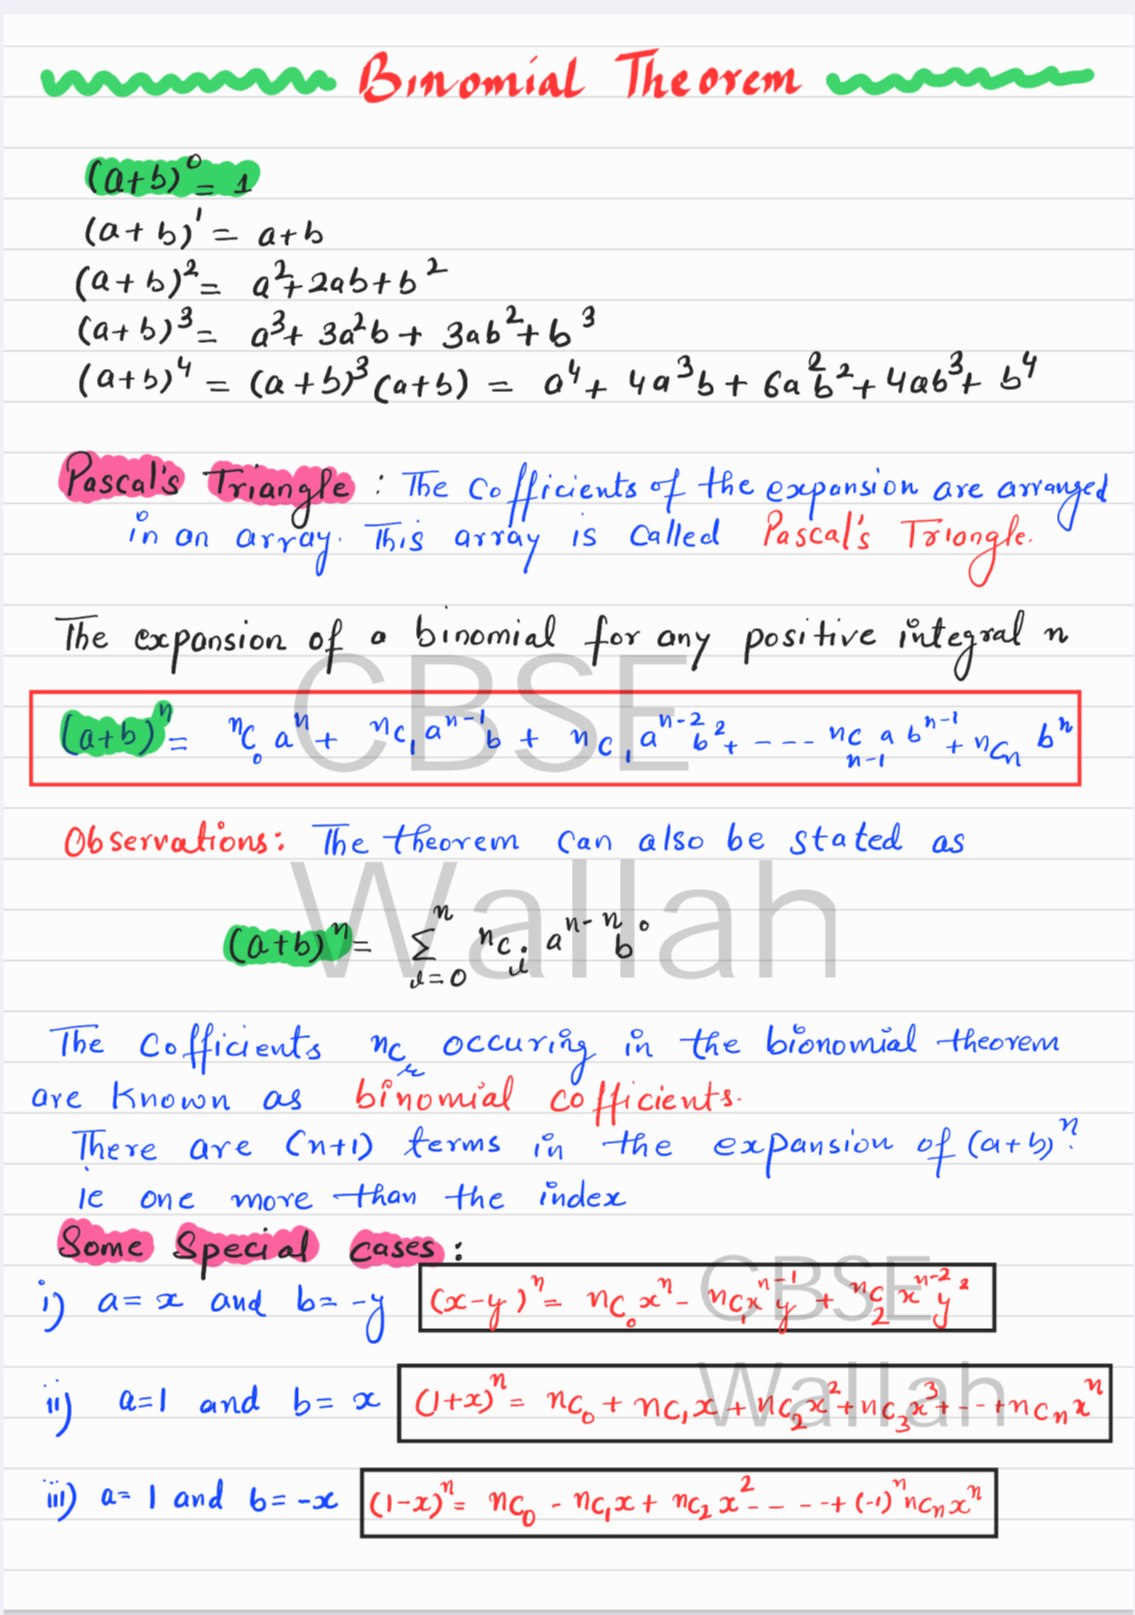 Binomial Theorem
(a+b)⁰ = 1
(a+b)¹ = a+b
(a+b)² = a²+2ab+b²
(a+b)³ = a³+ 3a²b + 3ab²+b³
(a+b)⁴ = (a+b)³(a+b) = a⁴+ 4a³b + 6a²b²+4ab³+ b⁴
Pascal's Triangle : The Cofficients of the expansion are arranged
in an array. This array is Called Pascal's Triangle.
The expansion of a binomial for any positive integral n
(a+b)ⁿ = ⁿC₀ aⁿ + ⁿC₁ aⁿ⁻¹b + ⁿC₁ aⁿ⁻²b² + ---- ⁿCₙ₋₁ a bⁿ⁻¹ + ⁿCₙ bⁿ
Observations: The theorem can also be stated as
(a+b)ⁿ = Σ ⁿC a ⁿ⁻ⁿ b⁰
The Cofficients ⁿCᵣ occuring in the bionomial theorem
are known as binomial cofficients.
There are (n+1) terms in the expansion of (a+b)ⁿ.
ie one more than the index
Some Special Cases :
i) a=x and b= -y (x-y)ⁿ = nC₀xⁿ - nC₁xⁿ⁻¹y + ⁿC₂xⁿ⁻²y²
ii) a=1 and b= x (1+x)ⁿ = nC₀ + nC₁x + nC₂x² + nC₃x³ + --- + nCₙxⁿ
iii) a= 1 and b= -x (1-x)ⁿ = nC₀ - nC₁x + nC₂x² - - - - + (-1)ⁿnCₙxⁿ
CBSE
Wallah
CBSE
Wallah